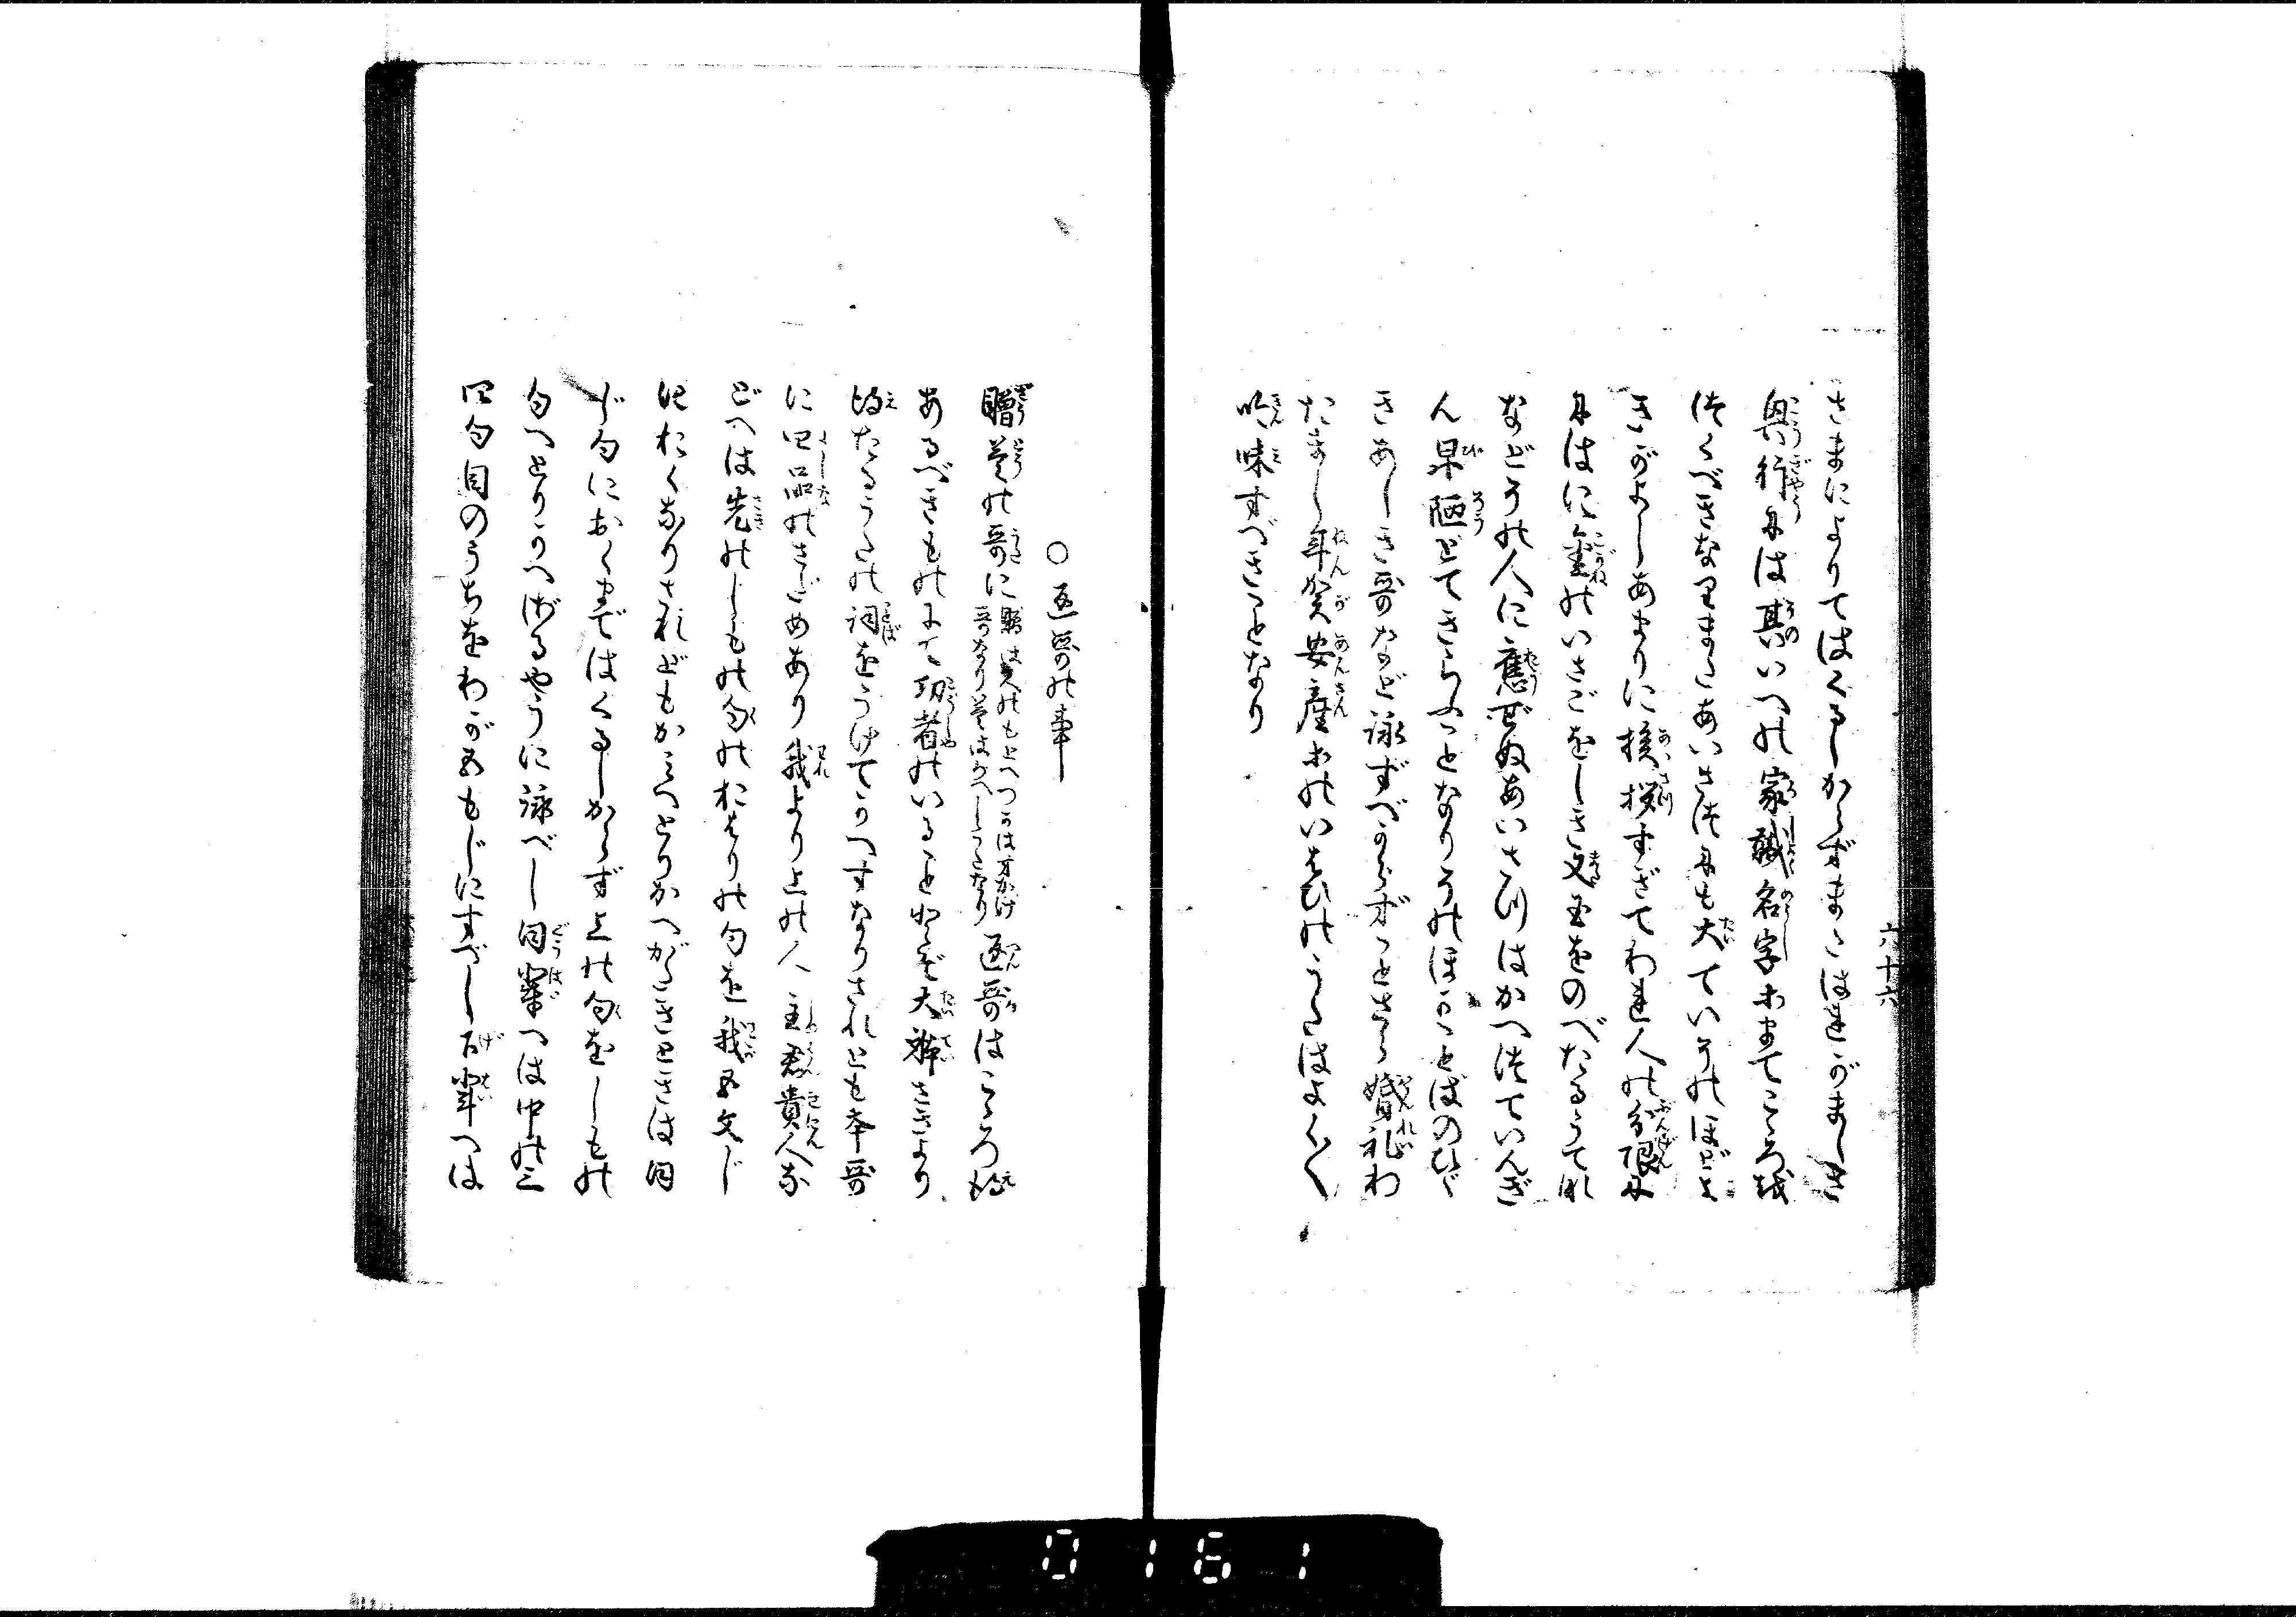 六十六
さまによりてはくるしからずまたはれがましき
興行には其いへの家職名字おまてこゝろ越
つくべきなりまたあいさつにも大ていそのほどよ
きがよしあまりに挨拶すぎてわれ人の分限に
にはに金のいさごをしき文玉をのべたるうてな
などその人に應ぜぬあいさつはかへつていんぎ
ん卑陋とてきらふことなりそのほかことばのひゞ
きあしき哥など詠ずべからずことさら婚礼わ
たまし年賀安産等のいはひのうたはよく〳〵
吟味すべきことなり
○返哥の事
贈答の哥に贈は人のもとへつかはすかけ哥なり答はかへしうたなり返哥はこゝろ得
あるべきものにて功者のいることなれど大躰さきより
得たるうたの詞をうけてかへすなりされとも本哥
に四品のさだめあり我より上の人主君貴人な
どへは先のしもの句のおはりの句を我五文じ
におくなりされどもかみへとりかへがたきときは同
じ句におくまではくるしからず上の句をしもの
句へとりかへざるやうに詠べし同輩へは中の三
四句目のうちをわが五もじにすべし下輩へは
0161